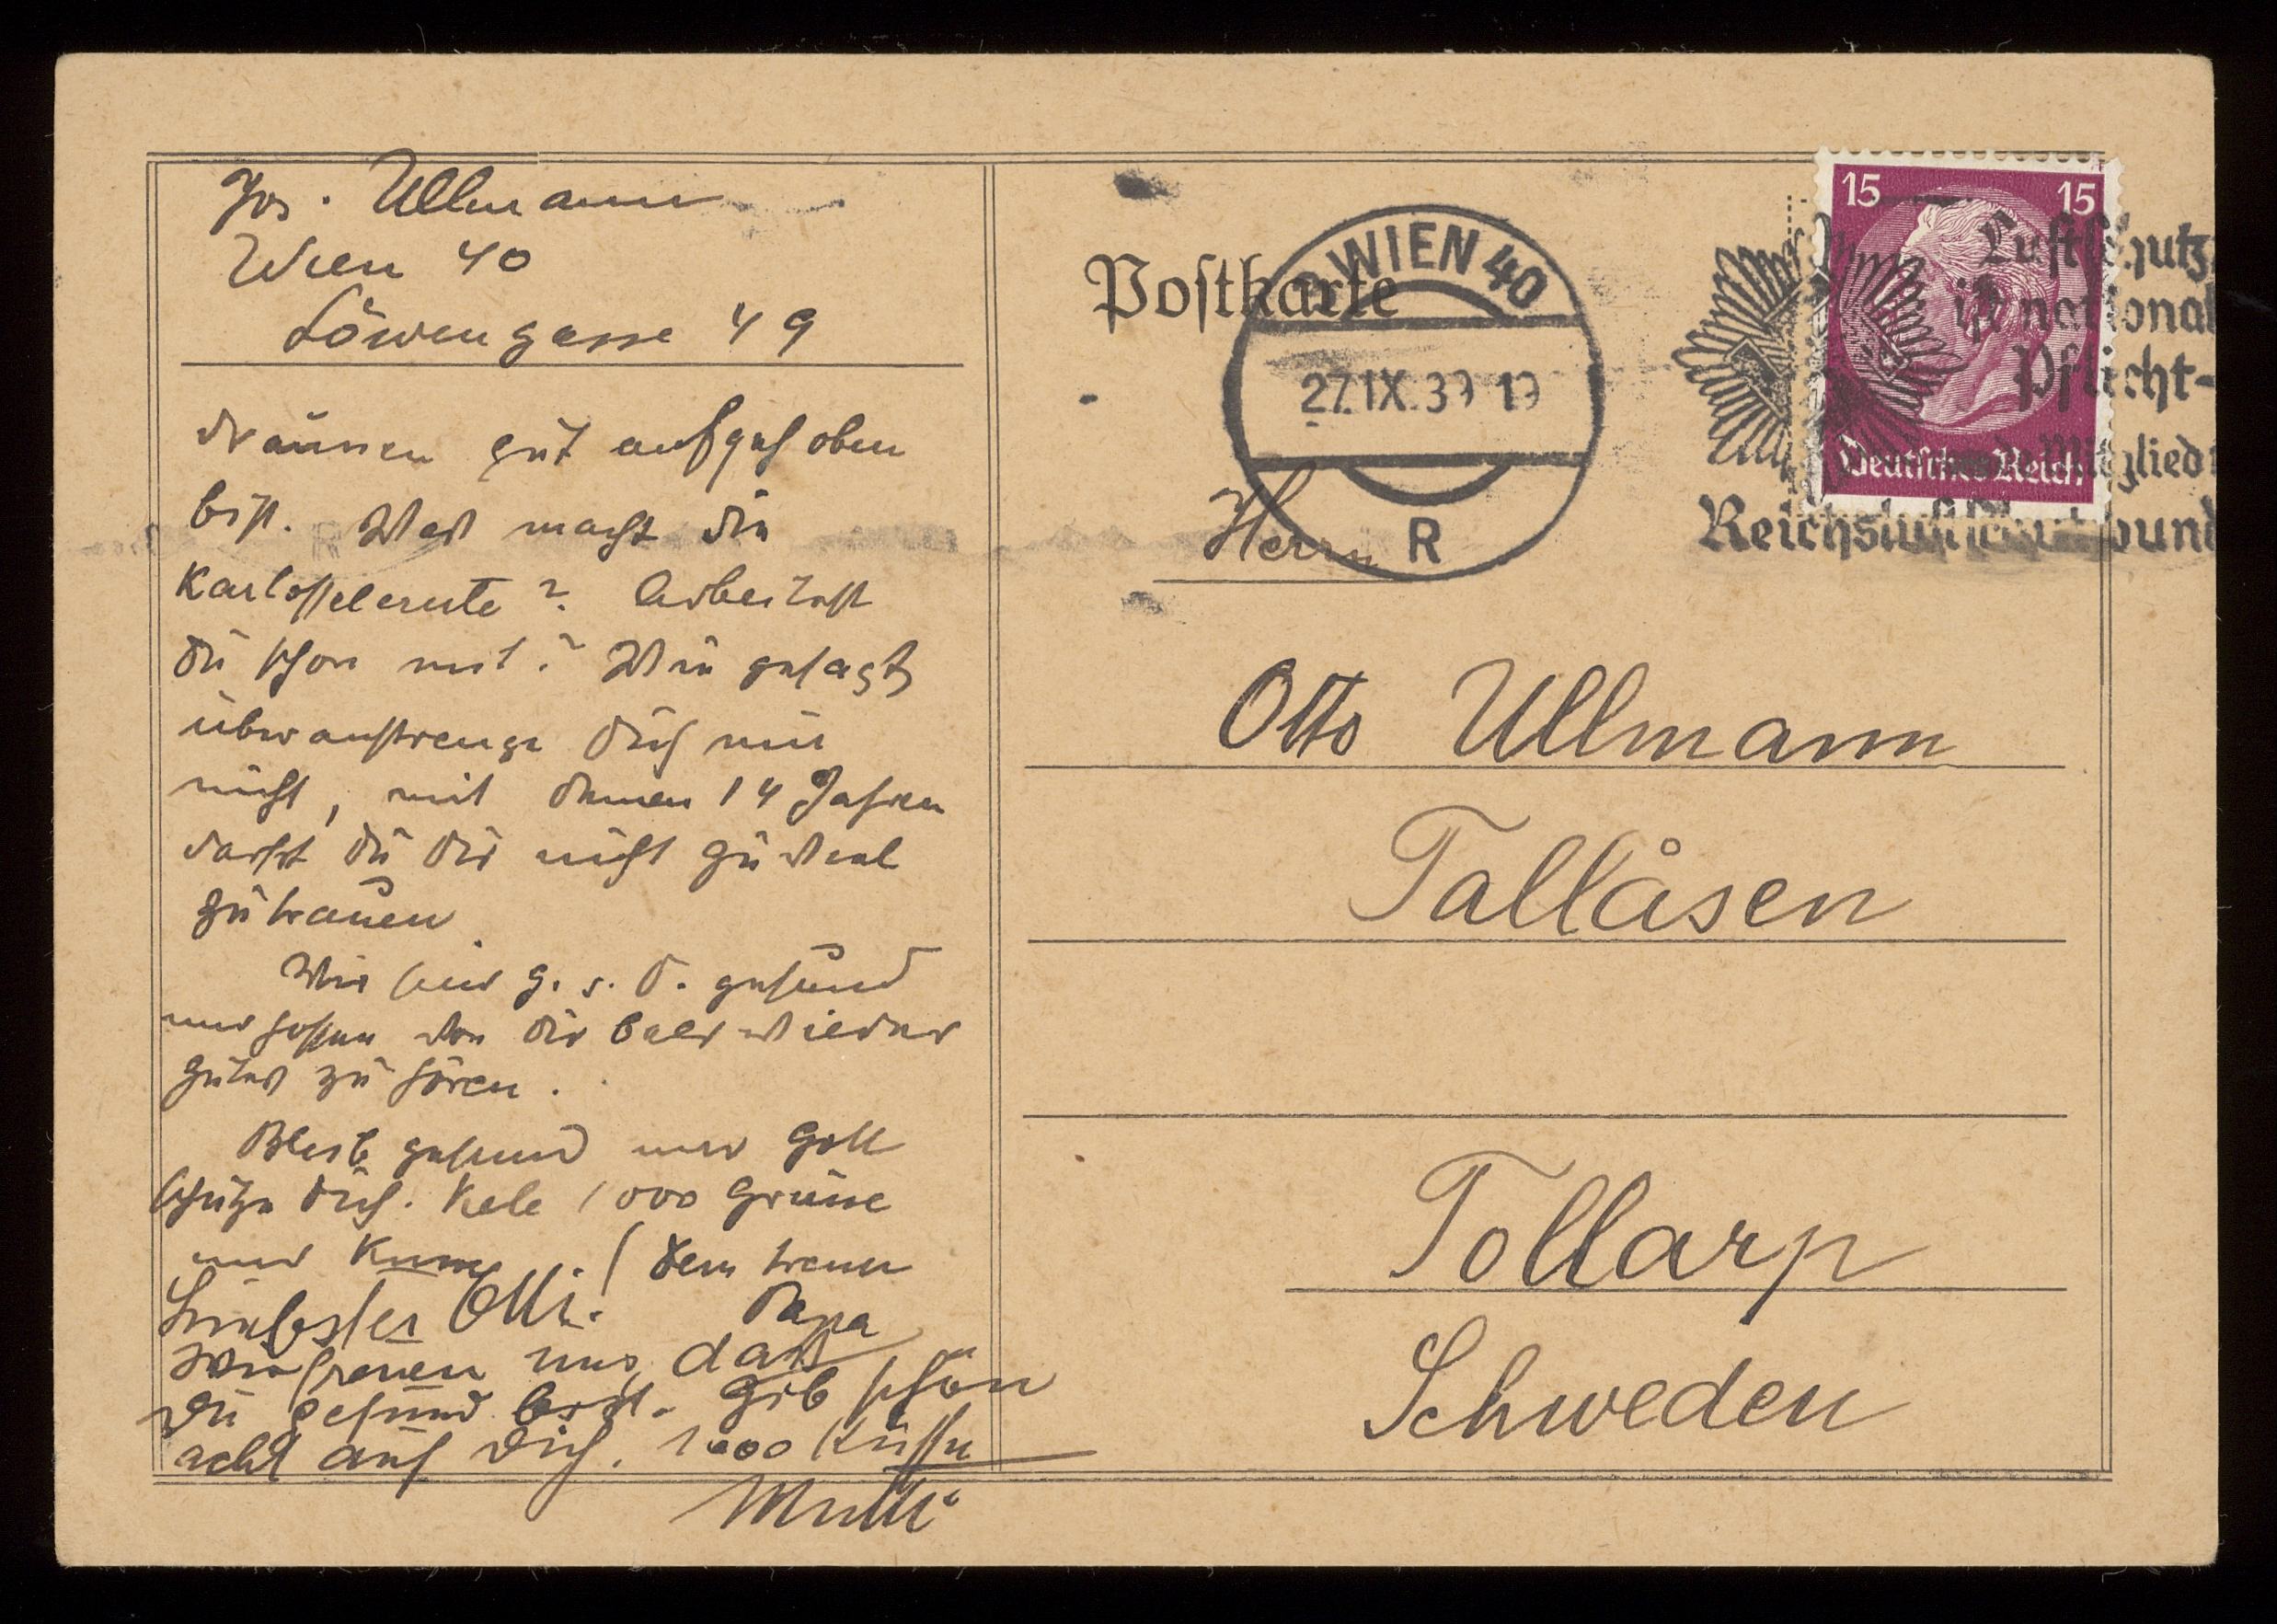 Jos. Ullmann
Wien 40
Löwengasse 49
draussen gut aufgehoben
bist. Was macht die
Kartoffelernte? Arbeitest
du schon mit? Wie gesagt
überanstrenge dich nur
nicht, mit deinen 14 Jahren
darfst du dir nicht zu viel
zutrauen.
Wir sind G. s. D. gesund
und hoffen von dir bald wieder
gutes zu hören.
Bleib gesund und Gott
schütze dich. Viele 1000 Grüsse
und Küsse dein treuer
Papa
Liebster Otti!
Wir freuen uns, daß
Du gesund bist. Gib schön
acht auf Dich. 1000 Küsse
Mutti
Postkarte
WIEN 40
27.IX.39 19
R
15 15
Deutsches Reich
Luftschutz
ist national
Pflicht-
Mitglied
Reichsluftschutzbund
Herrn
Otto Ullmann
Tallåsen
Tollarp
Schweden